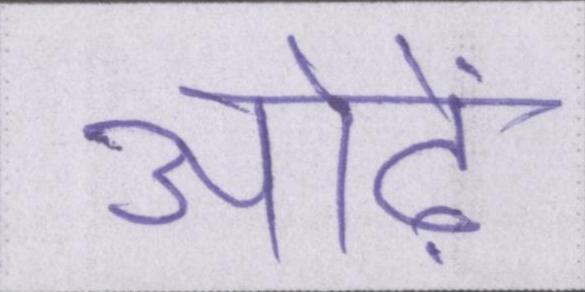 ओढ़ें